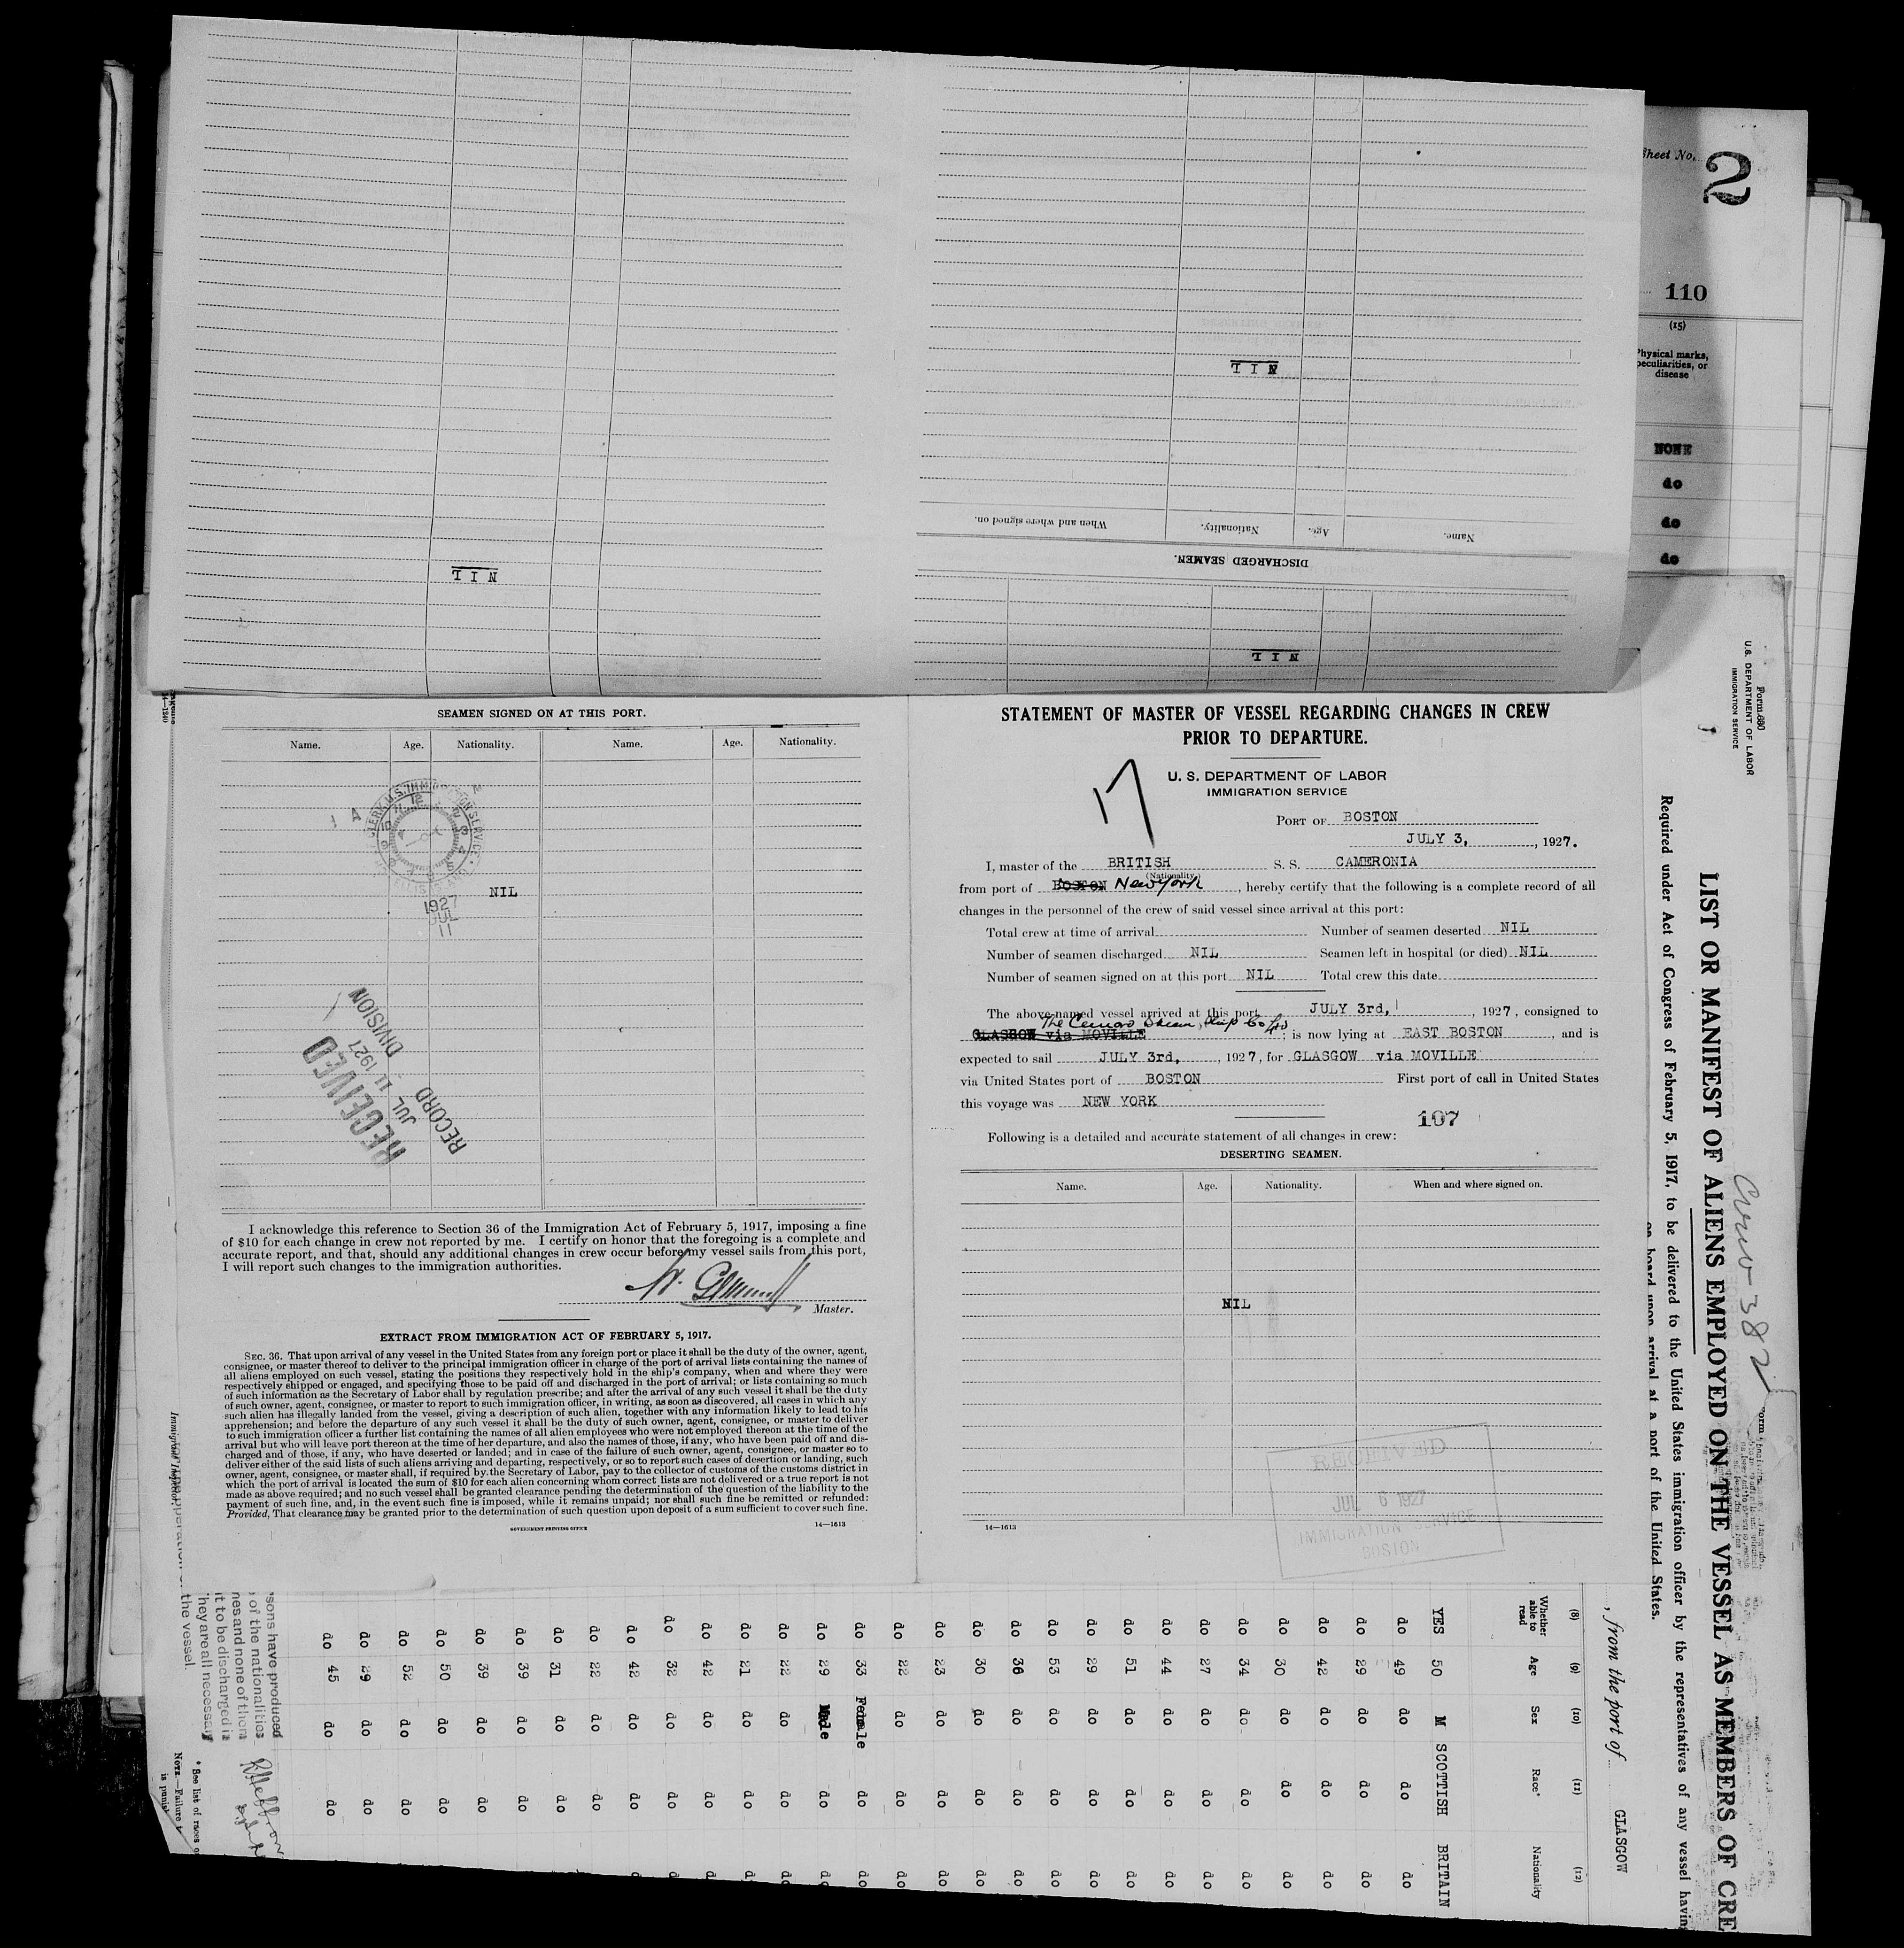 Sheet No.
2
110
(15)
Physical marks,
peculiarities, or
disease
NONE
do
do
do
NIL
NIL
When and where signed on.
Nationality.
Age.
Name.
DISCHARGED SEAMEN.
NIL
SEAMEN SIGNED ON AT THIS PORT.
Name. Age. Nationality. Name. Age. Nationality.
NIL
1927
JUL
11
RECEIVED
JUL 11 1927
RECORD DIVISION
I acknowledge this reference to Section 36 of the Immigration Act of February 5, 1917, imposing a fine
of $10 for each change in crew not reported by me. I certify on honor that the foregoing is a complete and
accurate report, and that, should any additional changes in crew occur before my vessel sails from this port,
I will report such changes to the immigration authorities.
Master.
EXTRACT FROM IMMIGRATION ACT OF FEBRUARY 5, 1917.
SEC. 36. That upon arrival of any vessel in the United States from any foreign port or place it shall be the duty of the owner, agent,
consignee, or master thereof to deliver to the principal immigration officer in charge of the port of arrival lists containing the names of
all aliens employed on such vessel, stating the positions they respectively hold in the ship's company, when and where they were
respectively shipped or engaged, and specifying those to be paid off and discharged in the port of arrival; or lists containing so much
of such information as the Secretary of Labor shall by regulation prescribe; and after the arrival of any such vessel it shall be the duty
of such owner, agent, consignee, or master to report to such immigration officer, in writing, as soon as discovered, all cases in which any
such alien has illegally landed from the vessel, giving a description of such alien, together with any information likely to lead to his
apprehension; and before the departure of any such vessel it shall be the duty of such owner, agent, consignee, or master to deliver
to such immigration officer a further list containing the names of all alien employees who were not employed thereon at the time of the
arrival but who will leave port thereon at the time of her departure, and also the names of those, if any, who have been paid off and dis-
charged and of those, if any, who have deserted or landed; and in case of the failure of such owner, agent, consignee, or master so to
deliver either of the said lists of such aliens arriving and departing, respectively, or so to report such cases of desertion or landing, such
owner, agent, consignee, or master shall, if required by the Secretary of Labor, pay to the collector of customs of the customs district in
which the port of arrival is located the sum of $10 for each alien concerning whom correct lists are not delivered or a true report is not
made as above required; and no such vessel shall be granted clearance pending the determination of the question of the liability to the
payment of such fine, and, in the event such fine is imposed, while it remains unpaid; nor shall such fine be remitted or refunded:
Provided, That clearance may be granted prior to the determination of such question upon deposit of a sum sufficient to cover such fine.
GOVERNMENT PRINTING OFFICE 14—1613
STATEMENT OF MASTER OF VESSEL REGARDING CHANGES IN CREW
PRIOR TO DEPARTURE.
17
U. S. DEPARTMENT OF LABOR
IMMIGRATION SERVICE
PORT OF BOSTON
JULY 3, , 1927.
I, master of the BRITISH S. S. CAMERONIA
(Nationality)
from port of BOSTON New York , hereby certify that the following is a complete record of all
changes in the personnel of the crew of said vessel since arrival at this port:
Total crew at time of arrival Number of seamen deserted NIL
Number of seamen discharged NIL Seamen left in hospital (or died) NIL
Number of seamen signed on at this port NIL Total crew this date
The above-named vessel arrived at this port JULY 3rd, , 1927, consigned to
GLASGOW via MOVILLE ; is now lying at EAST BOSTON , and is
expected to sail JULY 3rd, , 1927, for GLASGOW via MOVILLE
via United States port of BOSTON First port of call in United States
this voyage was NEW YORK
107
Following is a detailed and accurate statement of all changes in crew:
DESERTING SEAMEN.
Name. Age. Nationality. When and where signed on.
NIL
RECEIVED
JUL 6 1927
IMMIGRATION SERVICE
BOSTON
14—1613
Form 680
U.S. DEPARTMENT OF LABOR
IMMIGRATION SERVICE
Crew 382
LIST OR MANIFEST OF ALIENS EMPLOYED ON THE VESSEL AS MEMBERS OF CRE
Required under Act of Congress of February 5, 1917, to be delivered to the United States immigration officer by the representatives of any vessel having
on board upon arrival at a port of the United States.
, from the port of GLASGOW
(8) (9) (10) (11) (12)
Whether able to read Age Sex Race* Nationality
YES 50 M SCOTTISH BRITAIN
do 49 do do do
do 29 do do do
do 42 do do do
do 30 do do do
do 34 do. do do
do 27 do do do
do 44 do do do
do 51 do do do
do 29 do do do
do 53 do do do
do 36 do do do
do 30 do do do
do 23 do do do
do 22 do do do
do 33 Female do do
do 29 Male do do
do 22 do do do
do 21 do do do
do 42 do do do
do 32 do do do
do 42 do do do
do 22 do do do
do 31 do do do
do 39 do do do
do 39 do do do
do 50 do do do
do 52 do do do
do 29 do do do
do 45 do do
sons have produced
of the nationalities
nes and none of them
it to be discharged in
They are all necessary
the vessel.
* See list of races o
NOTE.—Failure
is punis
Immigrant Inspector.